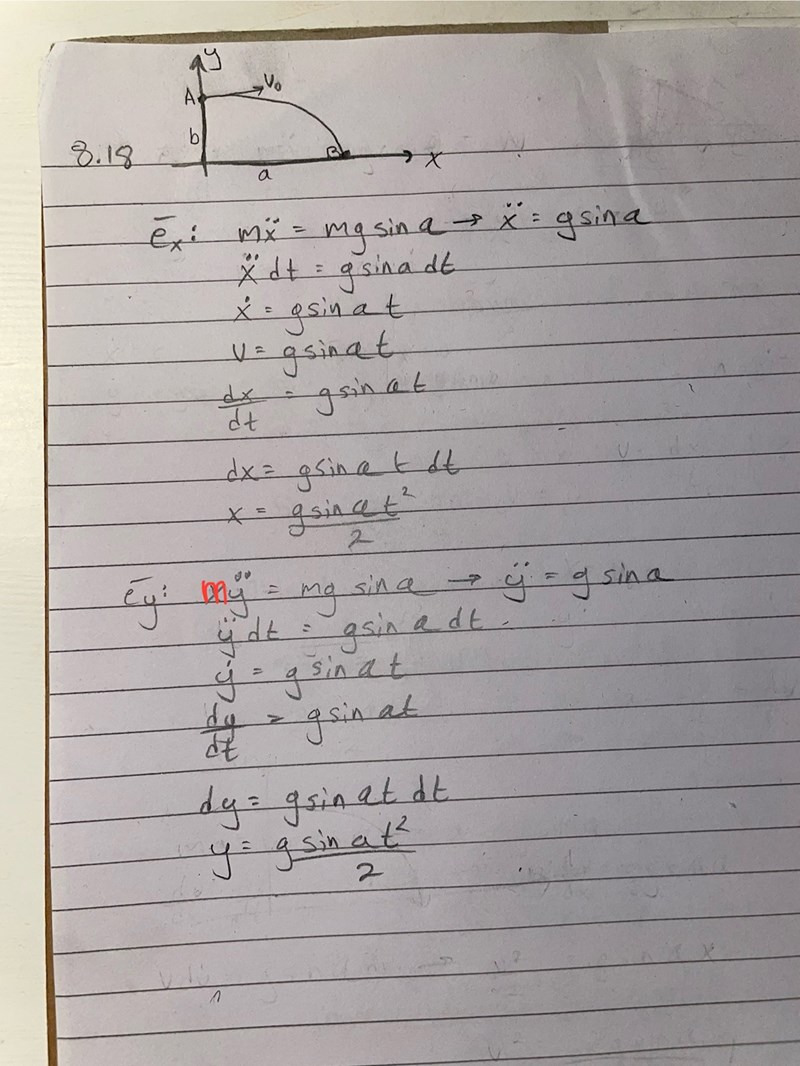 y
A
V₀
b
8.18
B
x
a
ēₓ: mẍ = mg sin a → ẍ = g sin a
ẍ dt = g sin a dt
ẋ = g sin a t
V = g sin a t
dx/dt = g sin a t
dx = g sin a t dt
x = g sin a t²/2
ēy: mÿ = mg sin a → ÿ = g sin a
ÿ dt = g sin a dt
ẏ = g sin a t
dy/dt = g sin a t
dy = g sin a t dt
y = g sin a t²/2